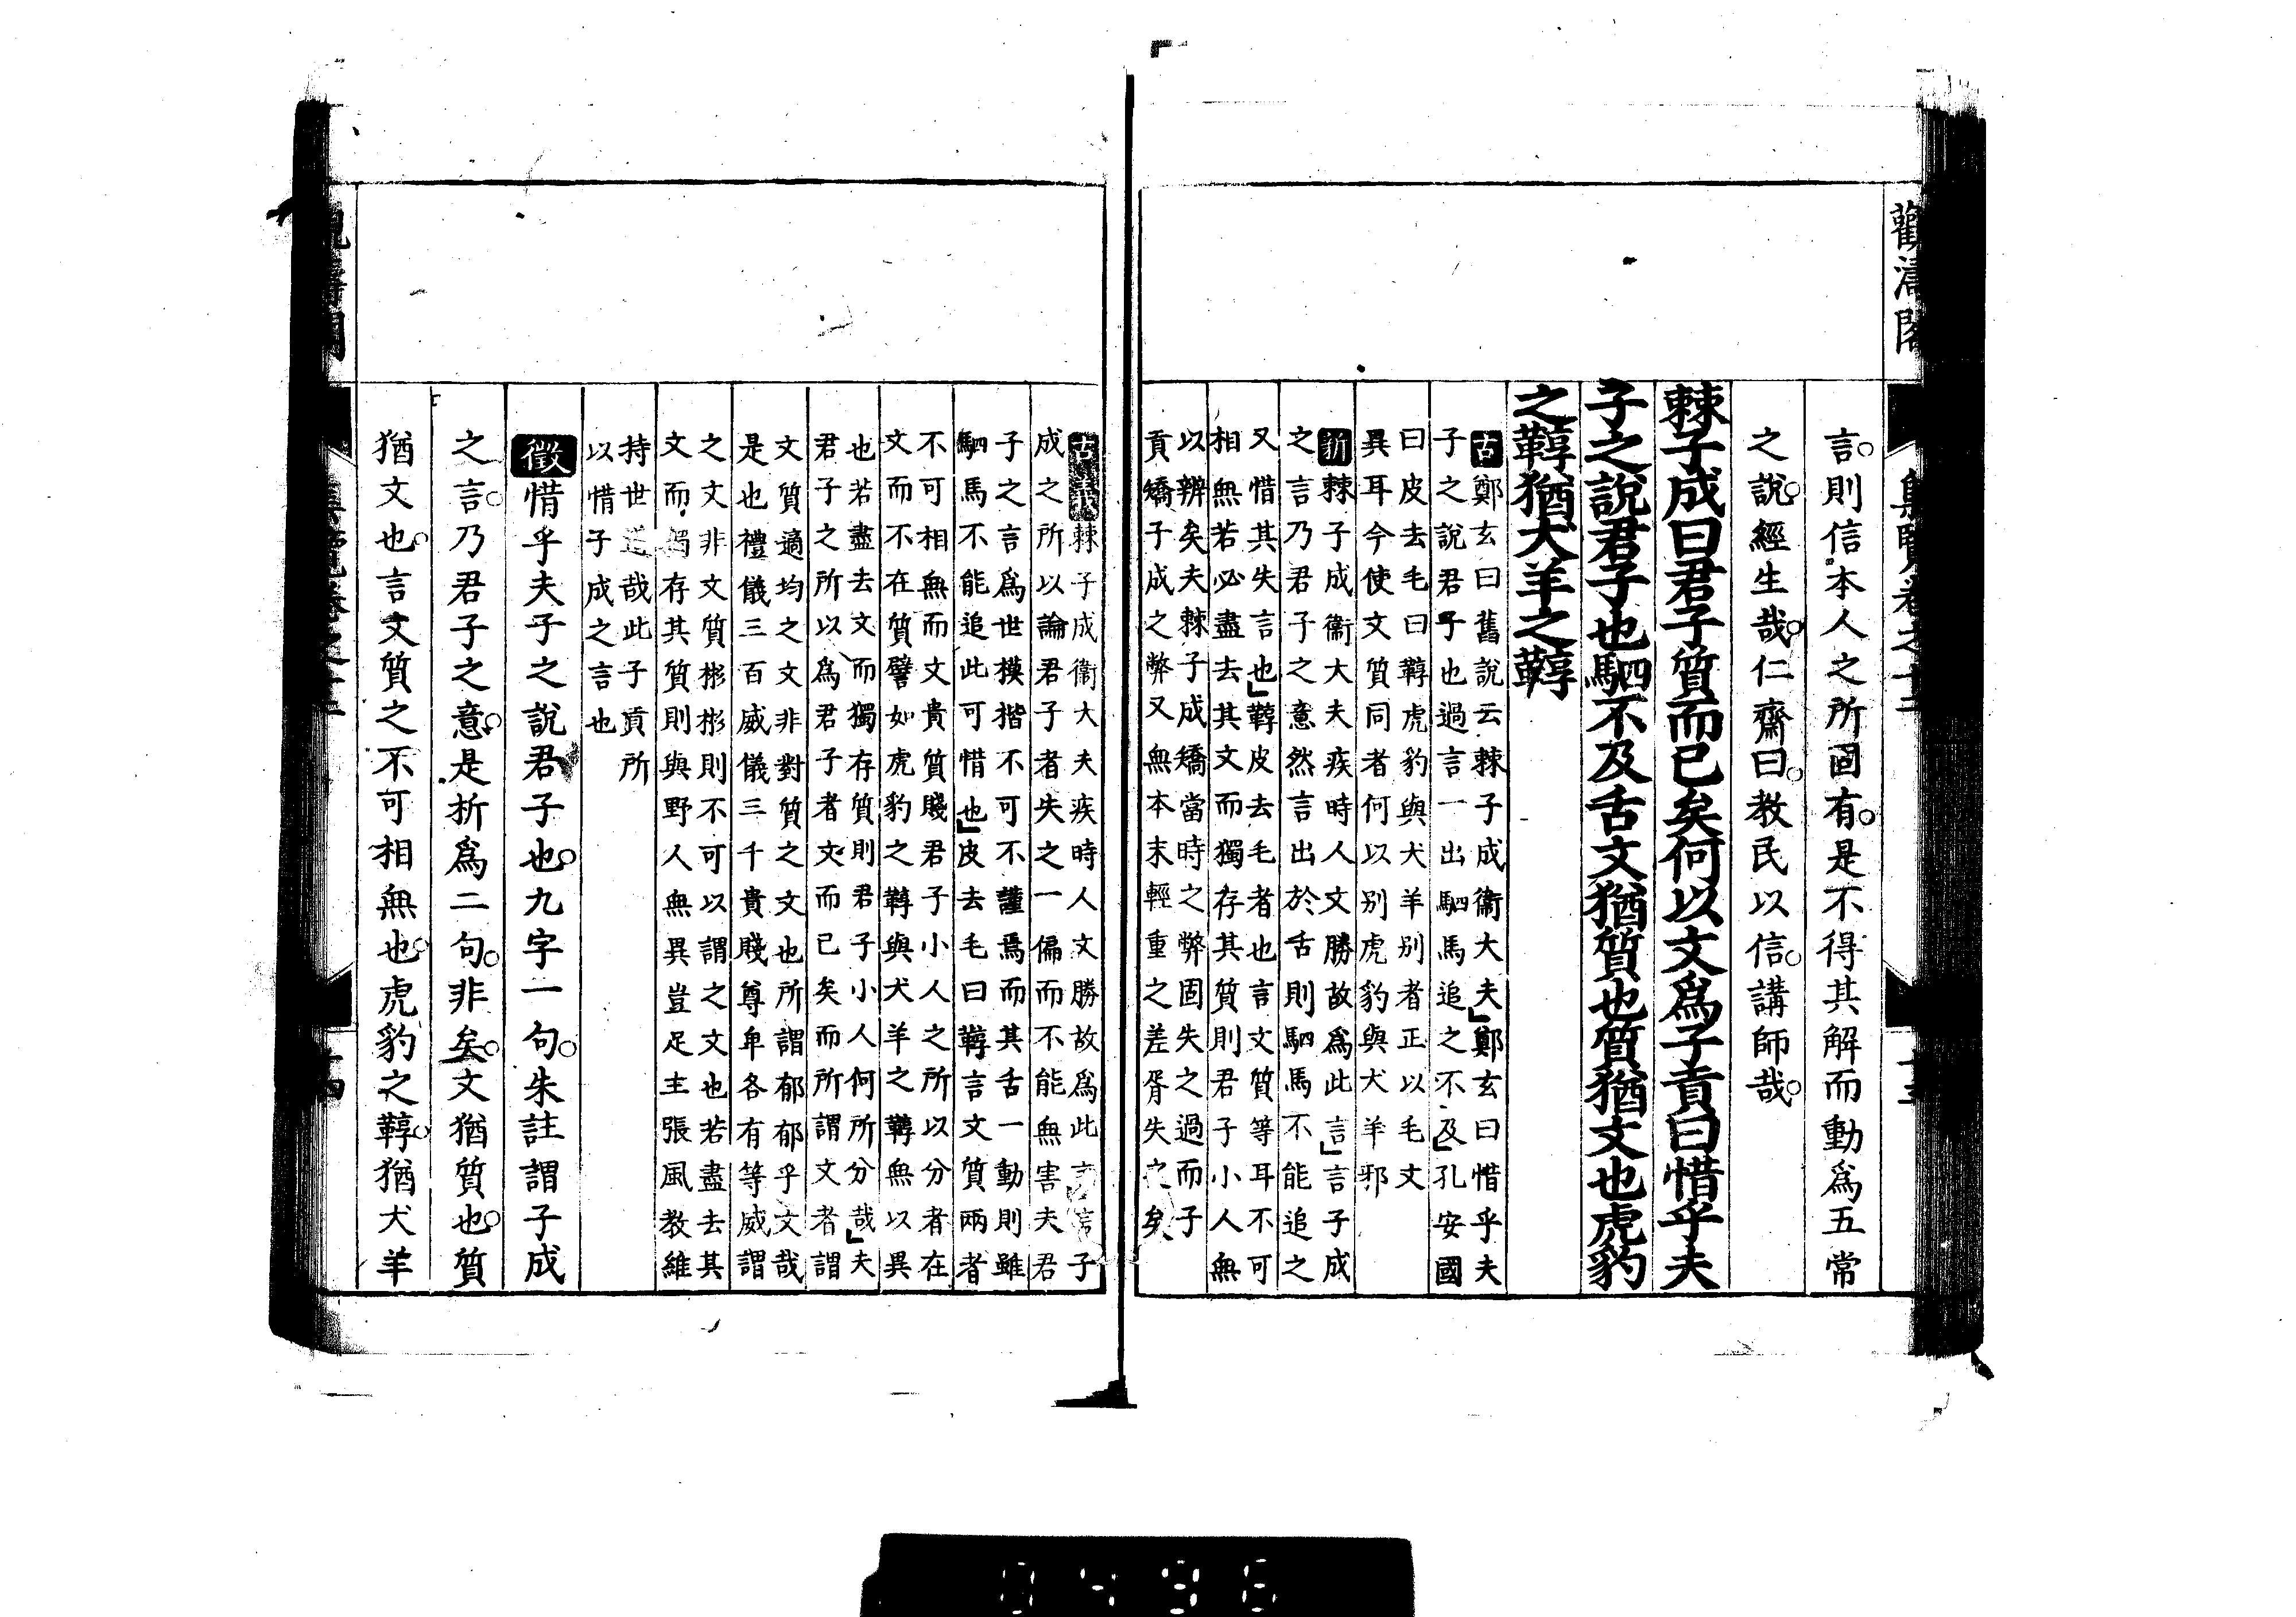 觀濤閣
集覽卷之十二
言則信本人之所固有是不得其解而動爲五常
之說經生哉仁齋曰教民以信講師哉
棘子成曰君子質而已矣何以文爲子貢曰惜乎夫
子之說君子也駟不及舌文猶質也質猶文也虎豹
之鞟猶犬羊之鞟
古鄭玄曰舊說云棘子成衞大夫鄭玄曰惜乎夫
子之說君子也過言一出駟馬追之不及孔安國
曰皮去毛曰鞟虎豹與犬羊別者正以毛文
異耳今使文質同者何以別虎豹與犬羊邪
新棘子成衞大夫疾時人文勝故爲此言言子成
之言乃君子之意然言出於舌則駟馬不能追之
又惜其失言也鞟皮去毛者也言文質等耳不可
相無若必盡去其文而獨存其質則君子小人無
以辨矣夫棘子成矯當時之弊固失之過而子
貢矯子成之弊又無本末輕重之差胥失之矣
古義棘子成衞大夫疾時人文勝故爲此言言子
成之所以論君子者失之一偏而不能無害夫君
子之言爲世模楷不可不謹焉而其舌一動則雖
駟馬不能追此可惜也皮去毛曰鞟言文質兩者
不可相無而文貴質賤君子小人之所以分者在
文而不在質譬如虎豹之鞟與犬羊之鞟無以異
也若盡去文而獨存質則君子小人何所分哉夫
君子之所以爲君子者文而已矣而所謂文者謂
文質適均之文非對質之文也所謂郁郁乎文哉
是也禮儀三百威儀三千貴賤尊卑各有等威謂
之文非文質彬彬則不可以謂之文也若盡去其
文而獨存其質則與野人無異豈足主張風教維
持世道哉此子貢所
以惜子成之言也
徵惜乎夫子之說君子也九字一句朱註謂子成
之言乃君子之意是析爲二句非矣文猶質也質
猶文也言文質之不可相無也虎豹之鞟猶犬羊
0496